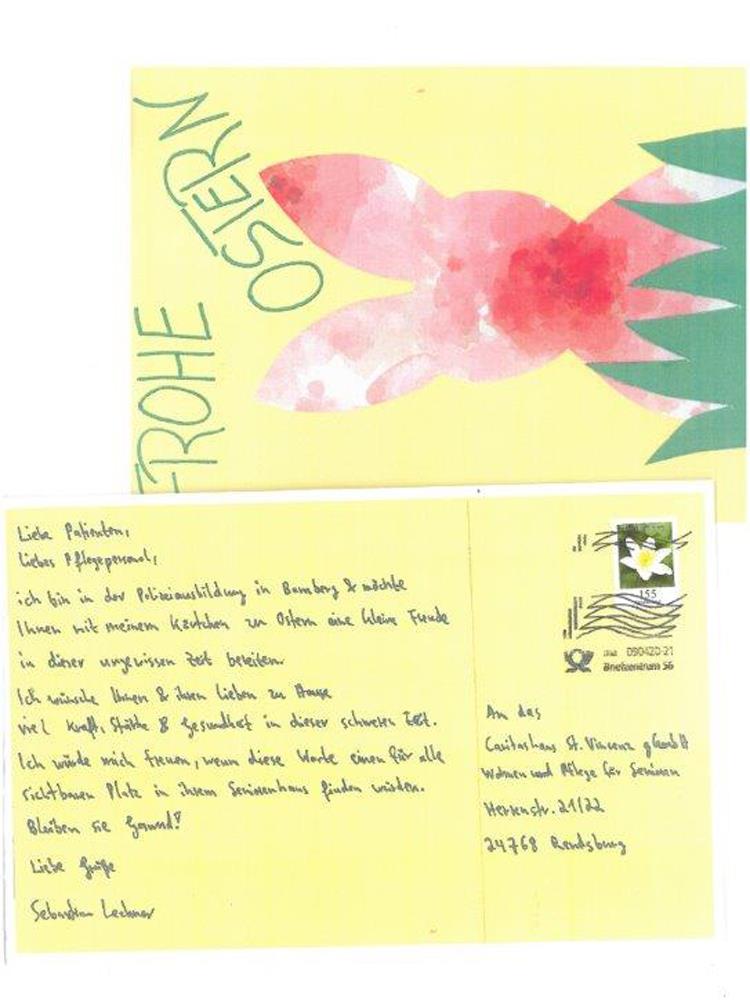 FROHE
OSTERN
Liebe Patienten,
Liebes Pflegepersonal,
ich bin in der Polizeiausbildung in Bamberg & möchte
Ihnen mit meinem Kärtchen zu Ostern eine kleine Freude
in dieser ungewissen Zeit bereiten.
Ich wünsche Ihnen & ihren Lieben zu Hause
viel Kraft, Stärke & Gesundheit in dieser schweren Zeit.
Ich würde mich freuen, wenn diese Worte einen für alle
sichtbaren Platz in ihrem Seniorenhaus finden würden.
Bleiben sie Gesund!
Liebe Grüße
Sebastian Lechner
155
090420-21
Briefzentrum 56
An das
Caritashaus St. Vincenz gGmbH
Wohnen und Pflege für Senioren
Herrenstr. 21/22
24768 Rendsburg